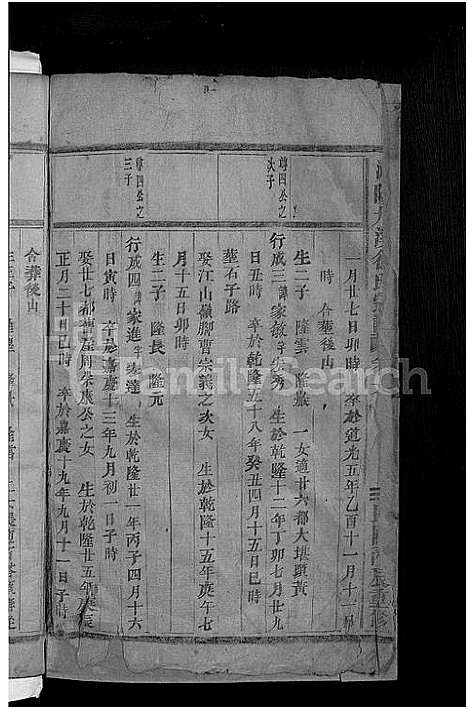 一月廿七日卯時 卒於道光五年乙酉十一月十一
時 合葬後山
生二子 隆雲 隆 一女適廿六都大堪頭黃
尊四公之
次子
行成三諱家敬字宗秀 生於乾隆十二年丁卯七月廿九
日丑時 卒於乾隆五十八年癸丑四月十五日巳時
塟石子路
娶江山嶺腳曹宗義之次女 生於乾隆十五年庚午七
月十五日卯時
生二子 隆長 隆元
尊四公之
三子
行成四諱家進字宗達 生於乾隆廿一年丙子四月十六
日寅時 卒於嘉慶十三年九月初一日子時
娶廿七都曹屋周宗慶公之女 生於乾隆廿五年庚辰
正月二十日巳時 卒於嘉慶十九年九月十一日子時
合葬後山
FamilySearch